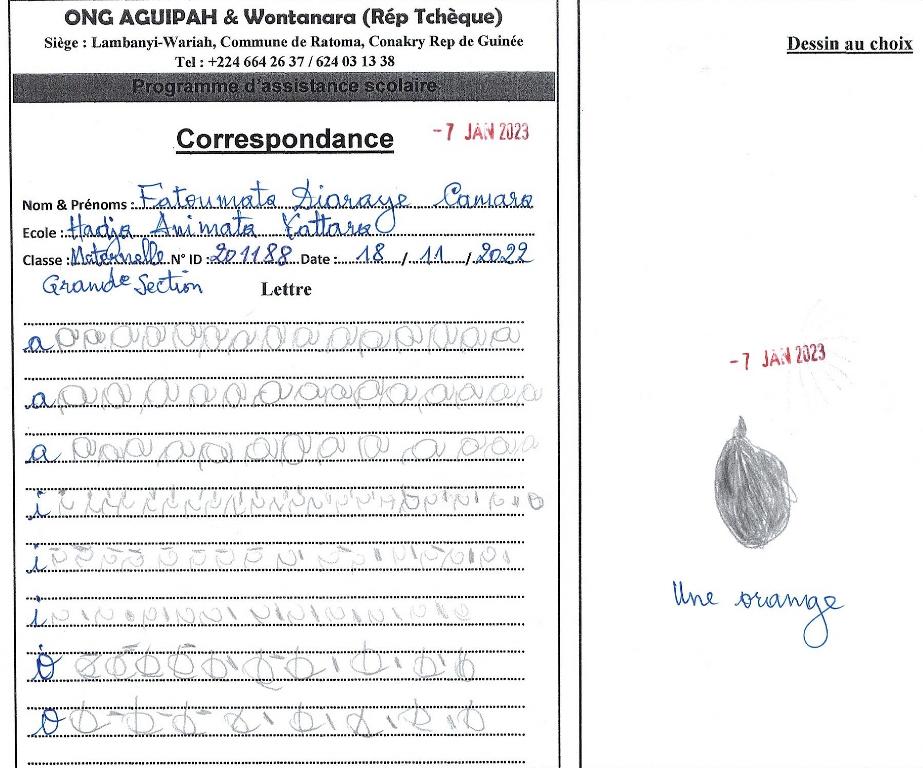 ONG AGUIPAH & Wontanara (Rép Tchèque)
Siège : Lambanyi-Wariah, Commune de Ratoma, Conakry Rep de Guinée
Tel : +224 664 26 37 / 624 03 13 38
Programme d'assistance scolaire
Correspondance
-7 JAN 2023
Nom & Prénoms : Fatoumata Diaraye Camara
Ecole : Hadja Animata Kattara
Classe : Maternelle N° ID : 201188 Date : 18 / 11 / 2022
Grande Section
Lettre
a
a
a
i
i
i
o
o
Dessin au choix
-7 JAN 2023
Une orange